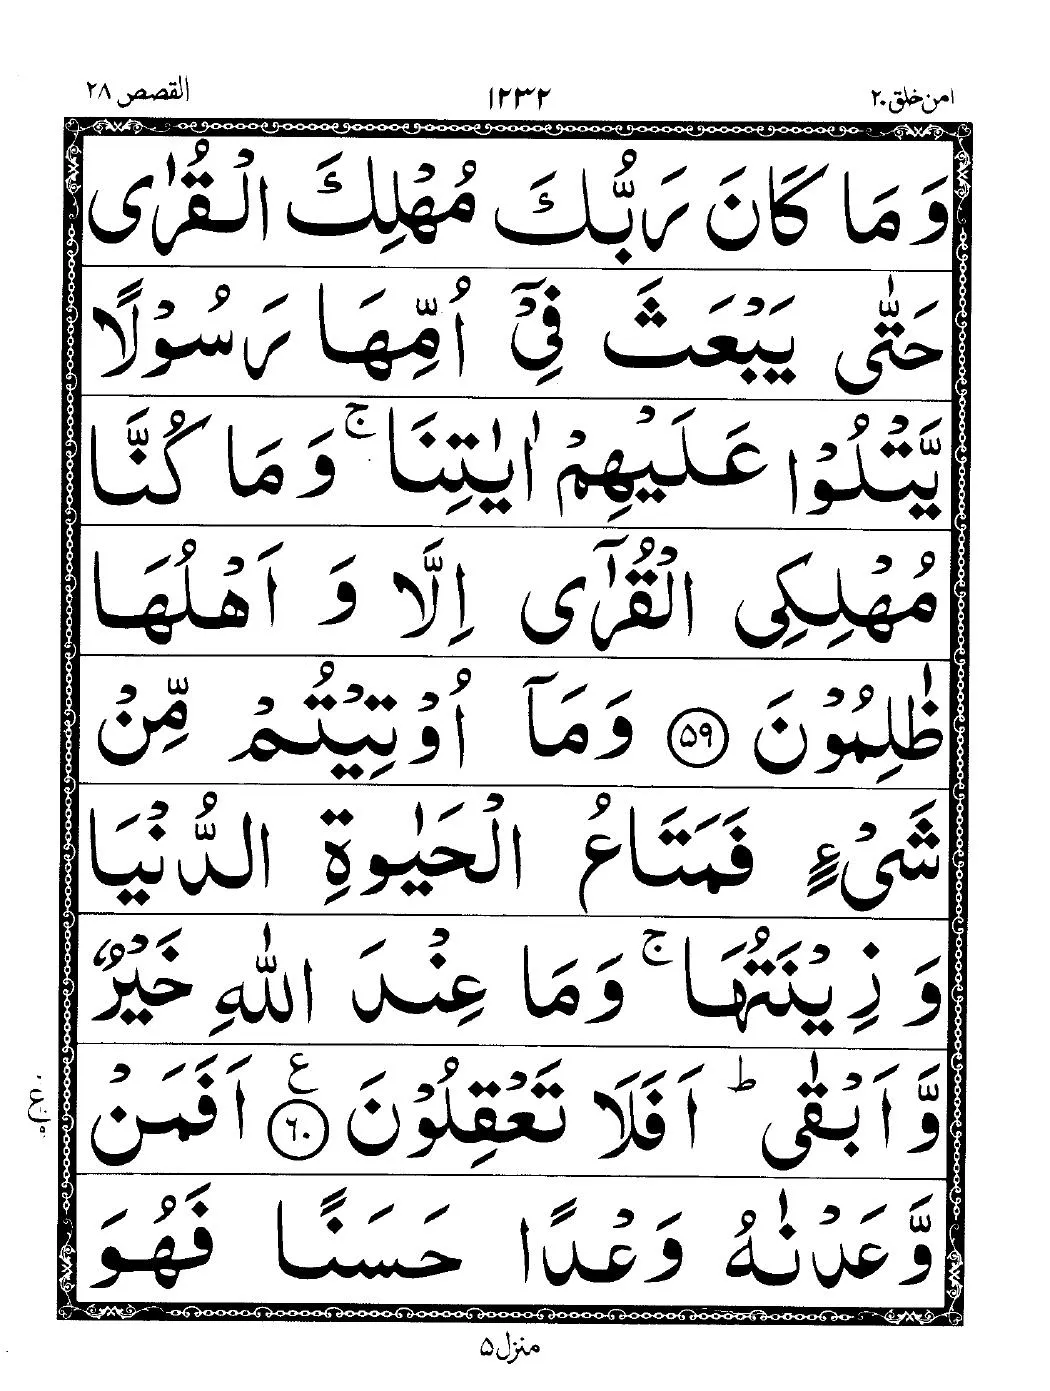 امن خلق ۲۰ ۱۲۳۲ القصص ۲۸
وَمَا كَانَ رَبُّكَ مُهْلِكَ الْقُرٰى
حَتّٰى يَبْعَثَ فِىْٓ اُمِّهَا رَسُوْلًا
يَّتْلُوْا عَلَيْهِمْ اٰيٰتِنَا ۚ وَمَا كُنَّا
مُهْلِكِى الْقُرٰٓى اِلَّا وَ اَهْلُهَا
ظٰلِمُوْنَ ۵۹ وَمَآ اُوْتِيْتُمْ مِّنْ
شَىْءٍ فَمَتَاعُ الْحَيٰوةِ الدُّنْيَا
وَ زِيْنَتُهَا ۚ وَمَا عِنْدَ اللّٰهِ خَيْرٌ
وَّاَبْقٰى ؕ اَفَلَا تَعْقِلُوْنَ ۶۰ ع اَفَمَنْ
وَّعَدْنٰهُ وَعْدًا حَسَنًا فَهُوَ
منزل ۵